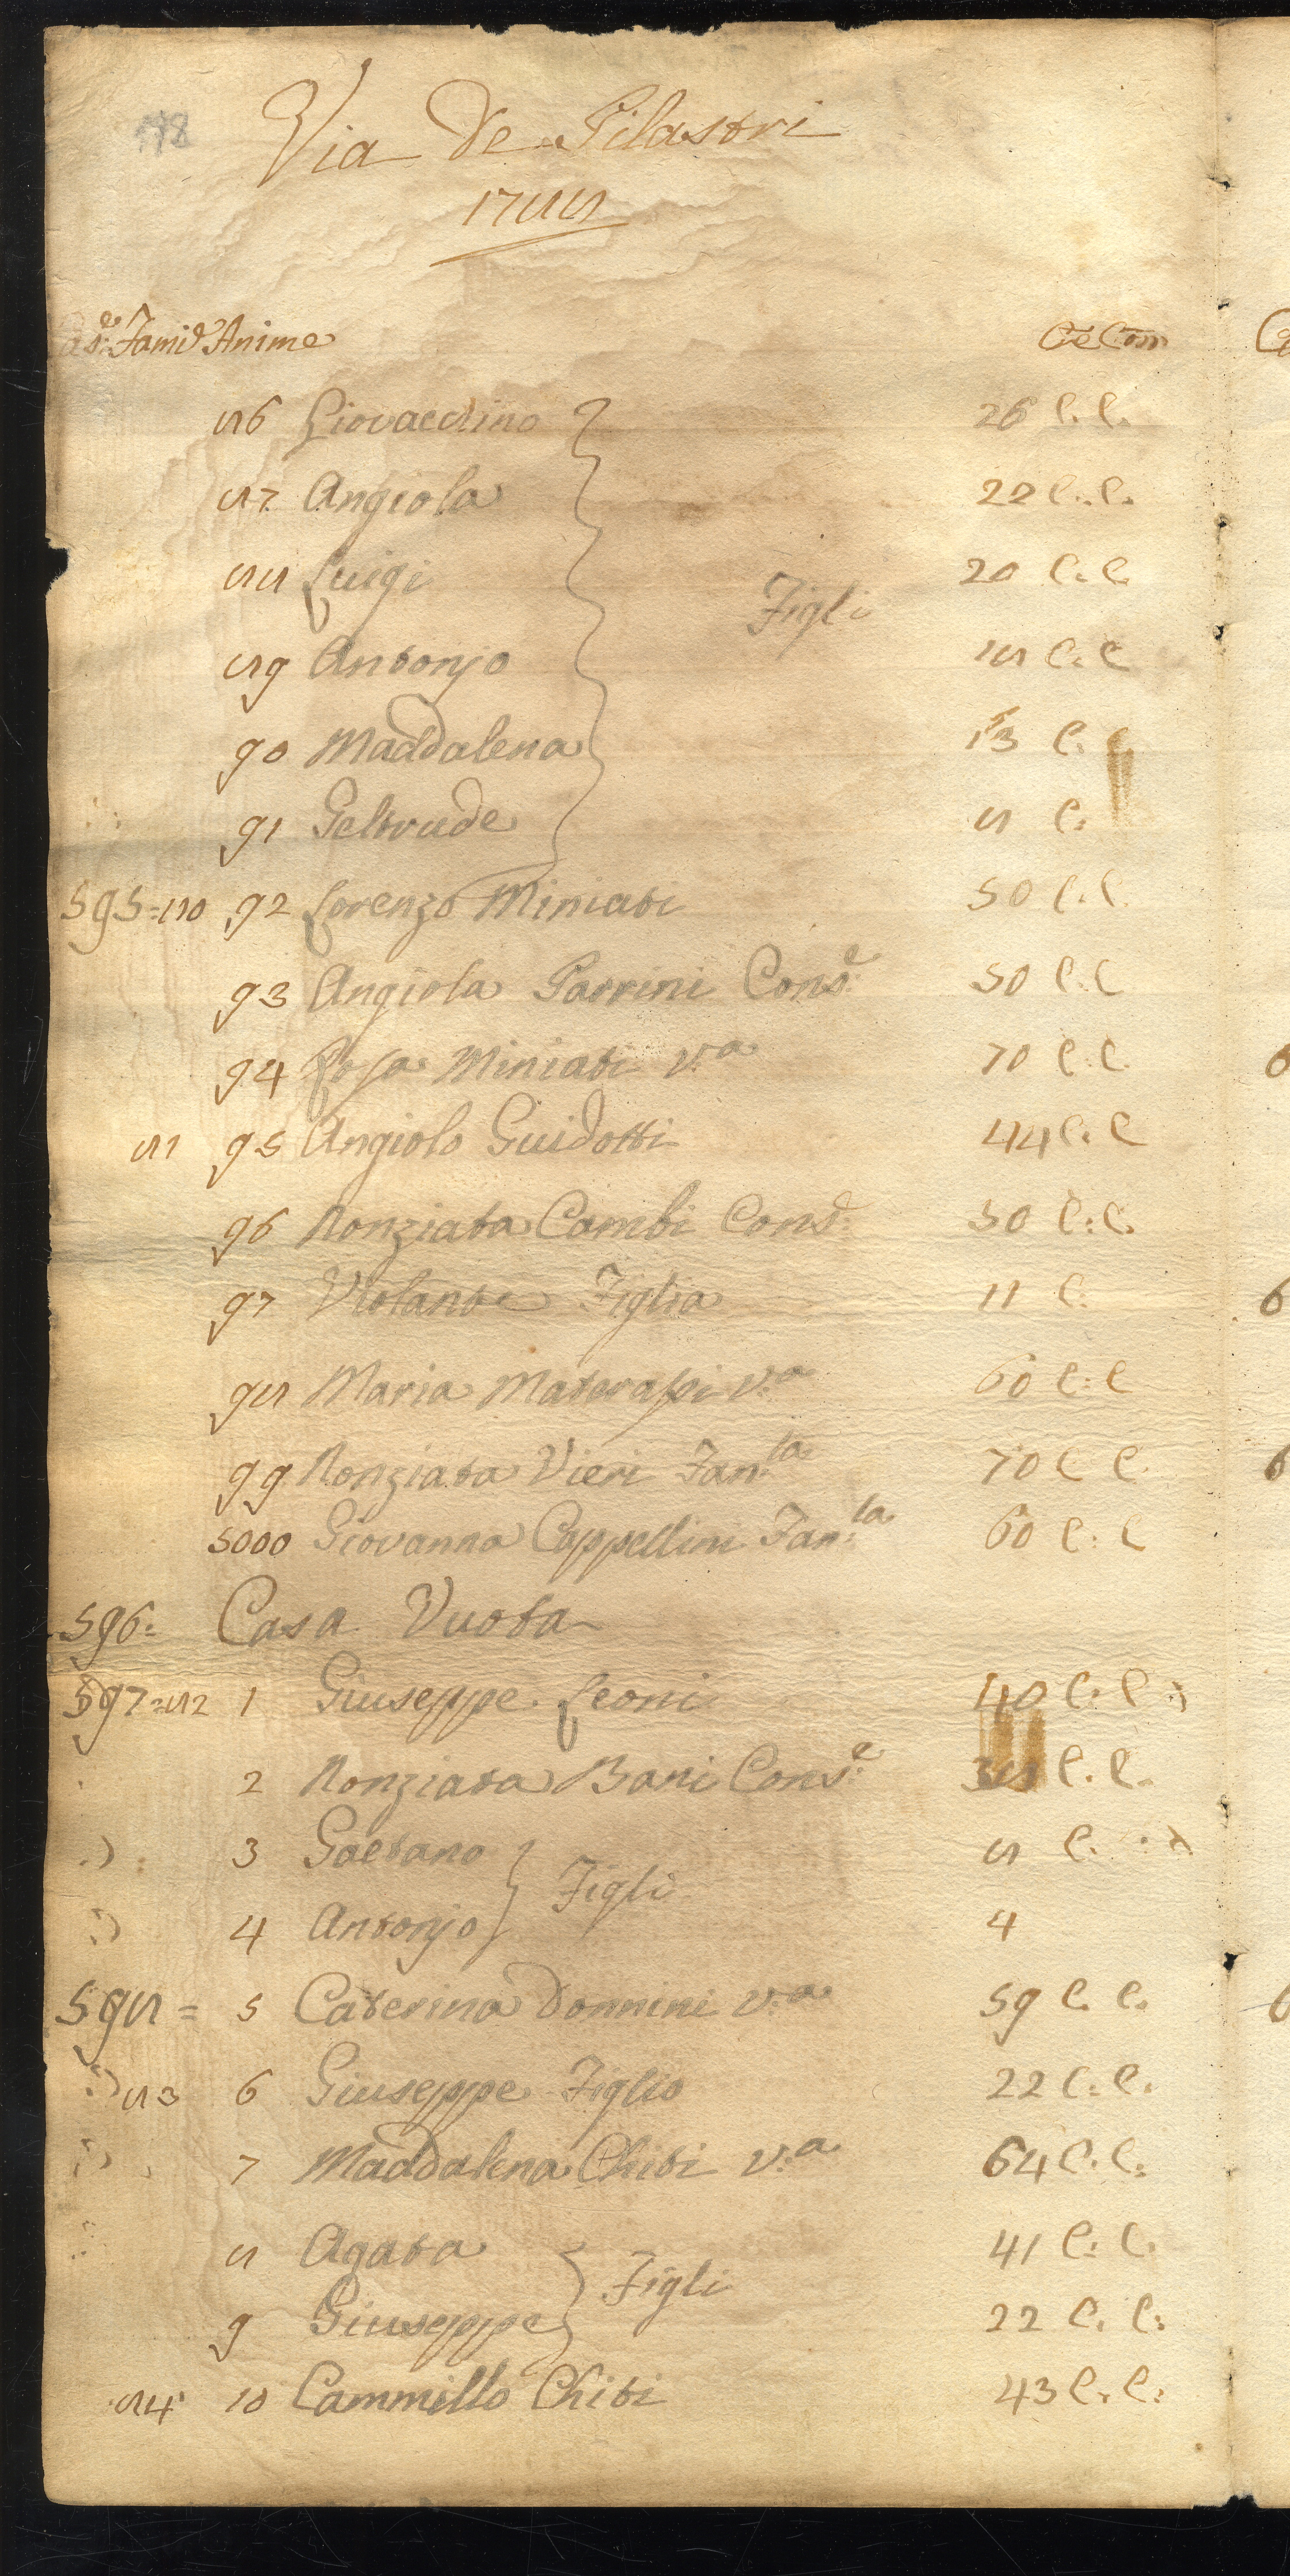 Via De Pilastri
1788
as.e Famie Anime Cre Com
86 Giovacchino 26 C. C.
87 Angiola 22 C. C.
88 Luigi 20 C. C
Figli
89 Antonjo 18 C. C
90 Maddalena 13 C. C
91 Geltrude 8 C.
595=80 92 Lorenzo Miniati 50 C. C.
93 Angiola Parrini Cons.e 50 C. C
94 Rosa Miniati v.a 70 C. C.
81 95 Angiolo Guidotti 44 C. C
96 Nonziata Cambi Cons.e 50 C. C.
97 Violante Figlia 11 C.
98 Maria Materassi v.a 60 C. C
99 Nonziata Vieri Fan.la 70 C C.
5000 Giovanna Cappellini Fan.la 60 C. C
596= Casa Vuota
597=82 1 Giuseppe Leoni 40 C. C
2 Nonziata Bani Cons.e 38 C. C.
3 Gaetano 8 C.
Figli
4 Antonjo 4
598= 5 Caterina Donnini v.a 59 C. C.
83 6 Giuseppe Figlio 22 C. C.
7 Maddalena Chiti v.a 64 C. C.
8 Agata 41 C. C.
Figli
9 Giuseppe 22 C. C.
84 10 Cammillo Chiti 43 C. C.